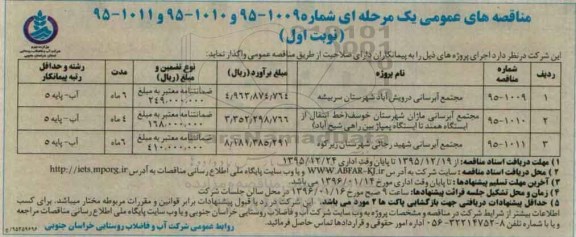 مناقصه های عمومی یک مرحله ای شماره ۱۰۰۹-۹۵ و ۱۰۱۰-۹۵ و ۱۰۱۱-۹۵
(نوبت اول)
این شرکت در نظر دارد اجرای پروژه های ذیل را به پیمانکاران دارای صلاحیت از طریق مناقصه عمومی واگذار نماید:
ردیف شماره مناقصه نام پروژه مبلغ برآورد (ریال) نوع تضمین و مبلغ (ریال) مدت رشته و حداقل رتبه پیمانکار
۱ ۹۵-۱۰۰۹ مجتمع آبرسانی درویش آباد شهرستان سربیشه ۴/۹۶۳/۸۷۴/۷۶۴ ضمانتنامه معتبر به مبلغ ۲۴۹.۰۰۰.۰۰۰ ۶ ماه آب- پایه ۵
۲ ۹۵-۱۰۱۰ مجتمع آبرسانی ماژان شهرستان خوسف(خط انتقال از ایستگاه همند تا ایستگاه پمپاژ بین راهی شیخ آباد) ۳/۳۵۲/۲۹۸/۷۶۶ ضمانتنامه معتبر به مبلغ ۱۶۸.۰۰۰.۰۰۰ ۴ ماه آب- پایه ۵
۳ ۹۵-۱۰۱۱ مجتمع آبرسانی شهید رجائی شهرستان زیرکوه ۸/۱۸۱/۳۸۵/۲۹۱ ضمانتنامه معتبر به مبلغ ۴۱۰.۰۰۰.۰۰۰ ۶ ماه آب- پایه ۵
۱) مهلت دریافت اسناد مناقصه: از ۱۳۹۵/۱۲/۱۹ تا پایان وقت اداری ۱۳۹۵/۱۲/۲۴
۲) محل دریافت اسناد مناقصه: سایت شرکت به آدرس WWW.ABFAR-KJ.ir و یا وب سایت پایگاه ملی اطلاع رسانی مناقصات به آدرس http://iets.mporg.ir
۳) آخرین مهلت تسلیم پیشنهادها: تا پایان وقت اداری ۱۳۹۶/۰۱/۱۴
۴) زمان و محل تشکیل جلسه قرائت پیشنهادها: ساعت ۹ صبح مورخ ۱۳۹۶/۰۱/۱۶ در محل سالن جلسات شرکت
۵) حداقل پیشنهادات دریافتی جهت بازگشایی پاکت ها ۲ مورد می باشد. این شرکت در رد یا قبول پیشنهادات برابر قوانین و مقررات مربوطه مختار میباشد. برای کسب
اطلاعات بیشتر از شرایط شرکت در مناقصه و مشخصات پروژه به وب سایت شرکت آب و فاضلاب روستایی خراسان جنوبی و یا وب سایت پایگاه ملی اطلاع رسانی مناقصات مراجعه
و یا با شماره تلفن ۸-۳۲۲۱۴۷۵۲-۰۵۶ اداره امور حقوقی و قراردادها تماس حاصل فرمایید.
روابط عمومی شرکت آب و فاضلاب روستایی خراسان جنوبی